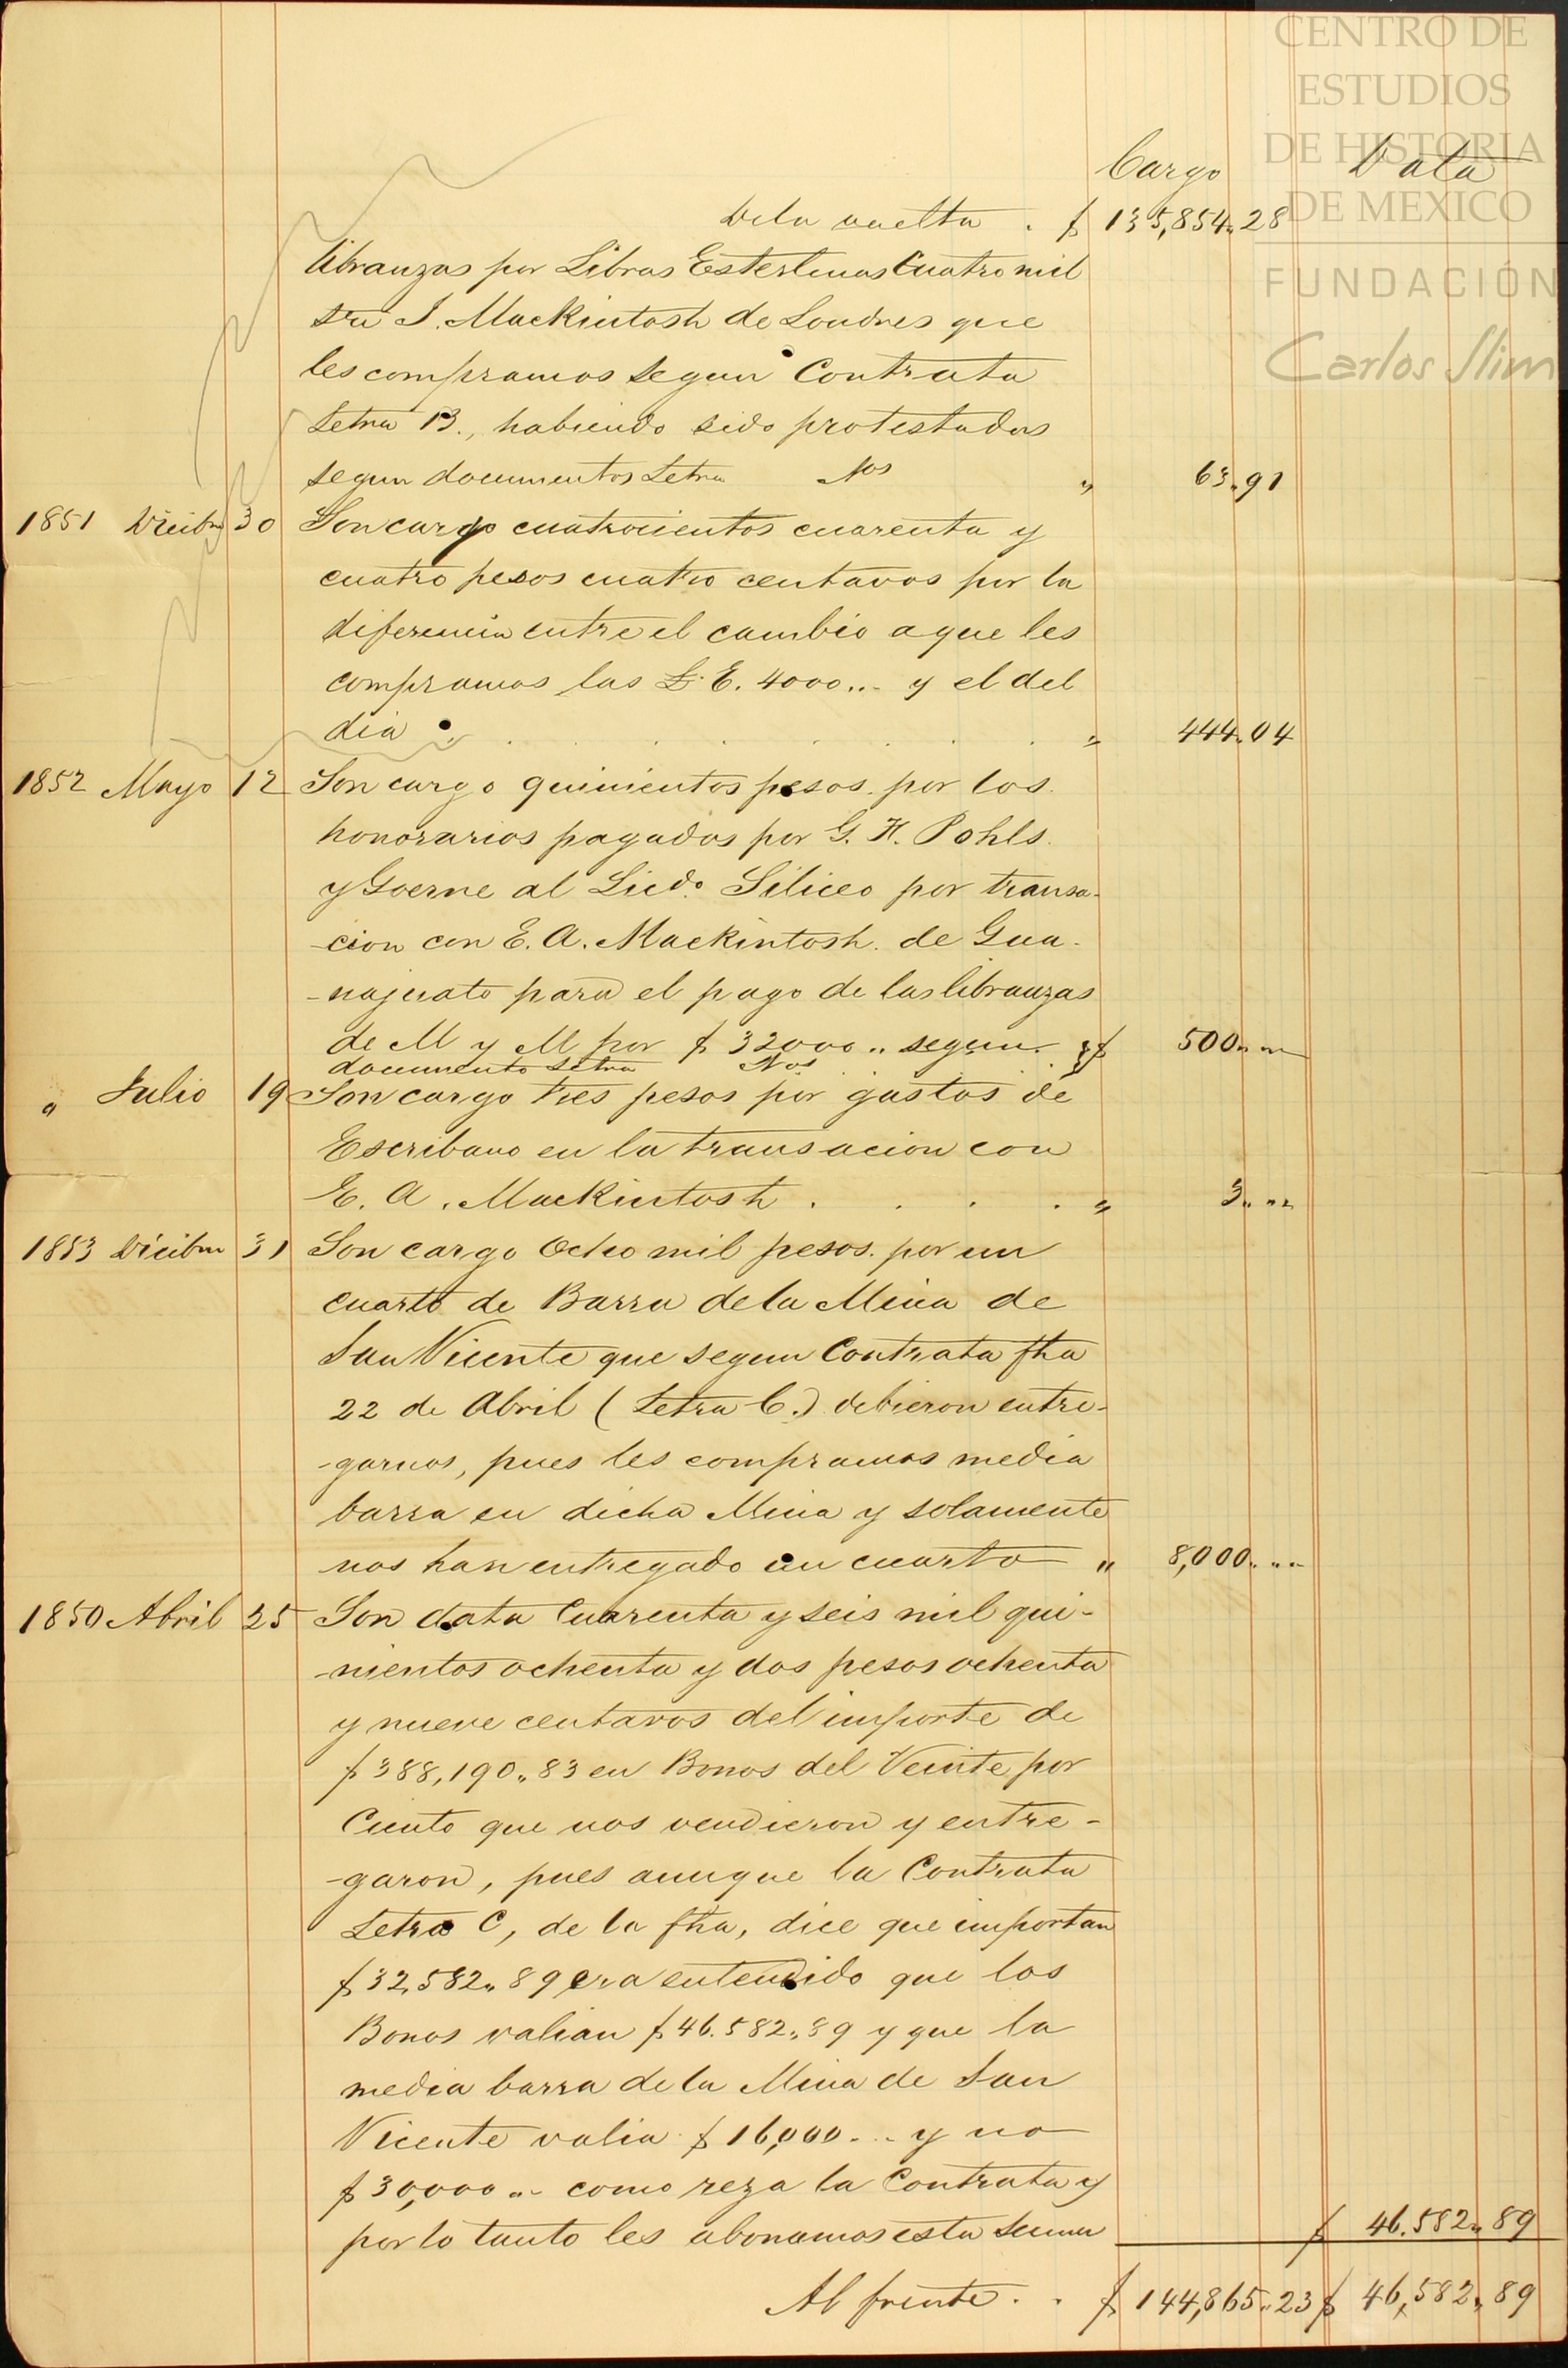 CENTRO DE
ESTUDIOS
DE HISTORIA
DE MEXICO
FUNDACIÓN
Carlos Slim
Cargo Data
Dela vuelta . $ 135,854.,28
libranzas por Libras Esterlinas Cuatro mil
s/u J. Mackintosh de Londres que
les compramos segun Contrata
Letra B., habiendo sido protestadas
segun documentos Letra Nos " 63.,91
1851 Dicibre 30 Son cargo cuatrocientos cuarenta y
cuatro pesos cuatro centavos por la
diferencia entre el cambio a que les
compramos las L. E. 4000... y el del
dia . . . . . . " 444.,04
1852 Mayo 12 Son cargo quinientos pesos por los
honorarios pagados por G. H. Pohls
y Goerne al Licdo. Siliceo por transa-
-cion con E. A. Mackintosh de Gua-
-najuato para el pago de las libranzas
de M y M por $ 32000 .. segun $ 500.,..
documento Letra Nos
" Julio 19 Son cargo tres pesos por gastos de
Escribano en la transacion con
E. A. Mackintosh . . . . " 3.,..
1853 Dicibre 31 Son cargo Ocho mil pesos por un
cuarto de Barra dela Mina de
San Vicente que segun Contrata fha
22 de Abril (Letra C.) debieron entre-
-garnos, pues les compramos media
barra en dicha Mina y solamente
nos han entregado un cuarto " 8,000.,..
1850 Abril 25 Son data Cuarenta y seis mil qui-
-nientos ochenta y dos pesos ochenta
y nueve centavos del importe de
$388,190.,83 en Bonos del Veinte por
Ciento que nos vendieron y entre-
-garon, pues aunque la Contrata
Letra C, de la fha, dice que importan
$32,582.,89 era entendido que los
Bonos valian $46.582.,89 y que la
media barra dela Mina de San
Vicente valia $ 16,000... y no
$30,000 .. como reza la Contrata y
por lo tanto les abonamos esta suma $ 46.582.,89
Al frente . . $ 144,865.,23 $ 46,582.,89